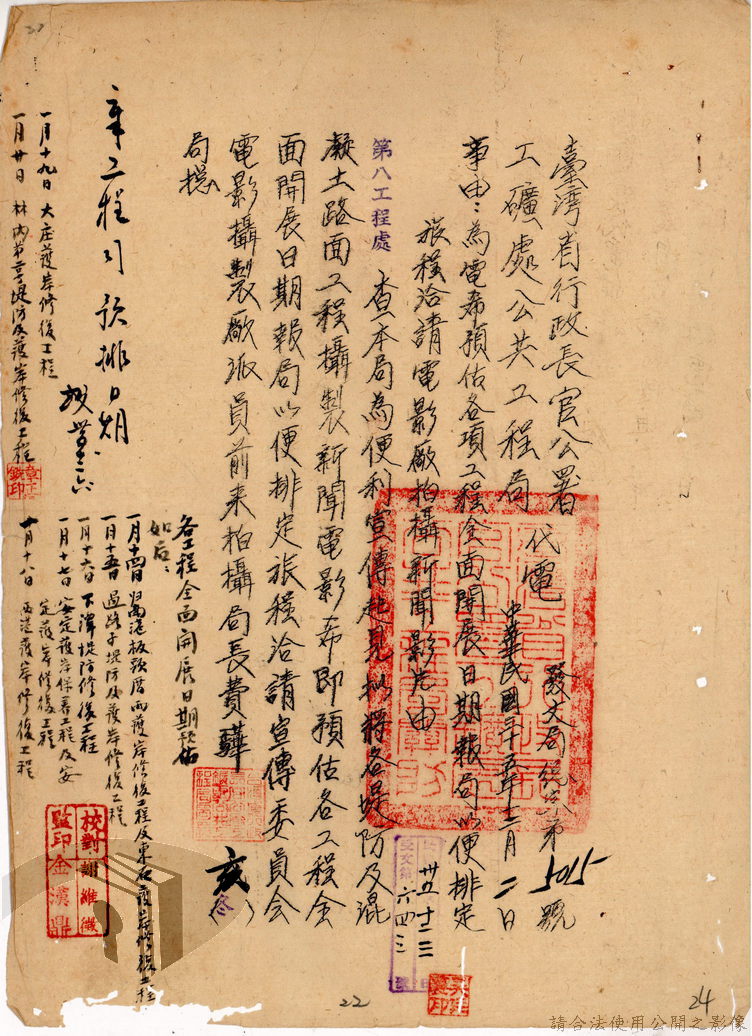 臺灣省行政長官公署
工礦處公共工程局
代電
發文局總字第5015號
中華民國三十五年十二月二日
事由:為電希預估各項工程全面開展日期報局以便排定
旅程洽請電影廠拍攝新聞影片由
第八工程處
查本局為便利宣傳起見擬將各堤防及混
凝土路面工程攝製新聞電影希即預估各工程全
面開展日期報局以便排定旅程洽請宣傳委員會
電影攝製廠派員前來拍攝局長費驊
亥
冬
局總
卅五十二三
收文第六四三號
各工程全面開展日期預估
如后:
一月十四日
一月十五日 過路子堤防及護岸修復工程
一月十六日 下潭堤防修復工程
一月十七日 安定護岸保養工程及安
定護岸修復工程
一月十八日 西港護岸修復工程
一月十九日 大庄護岸修復工程
一月廿日 林內第二号堤防及護岸修復工程
章工程司預排日期
校對 謝維徵
監印 金漢鼎
22
24
請合法使用公開之影像